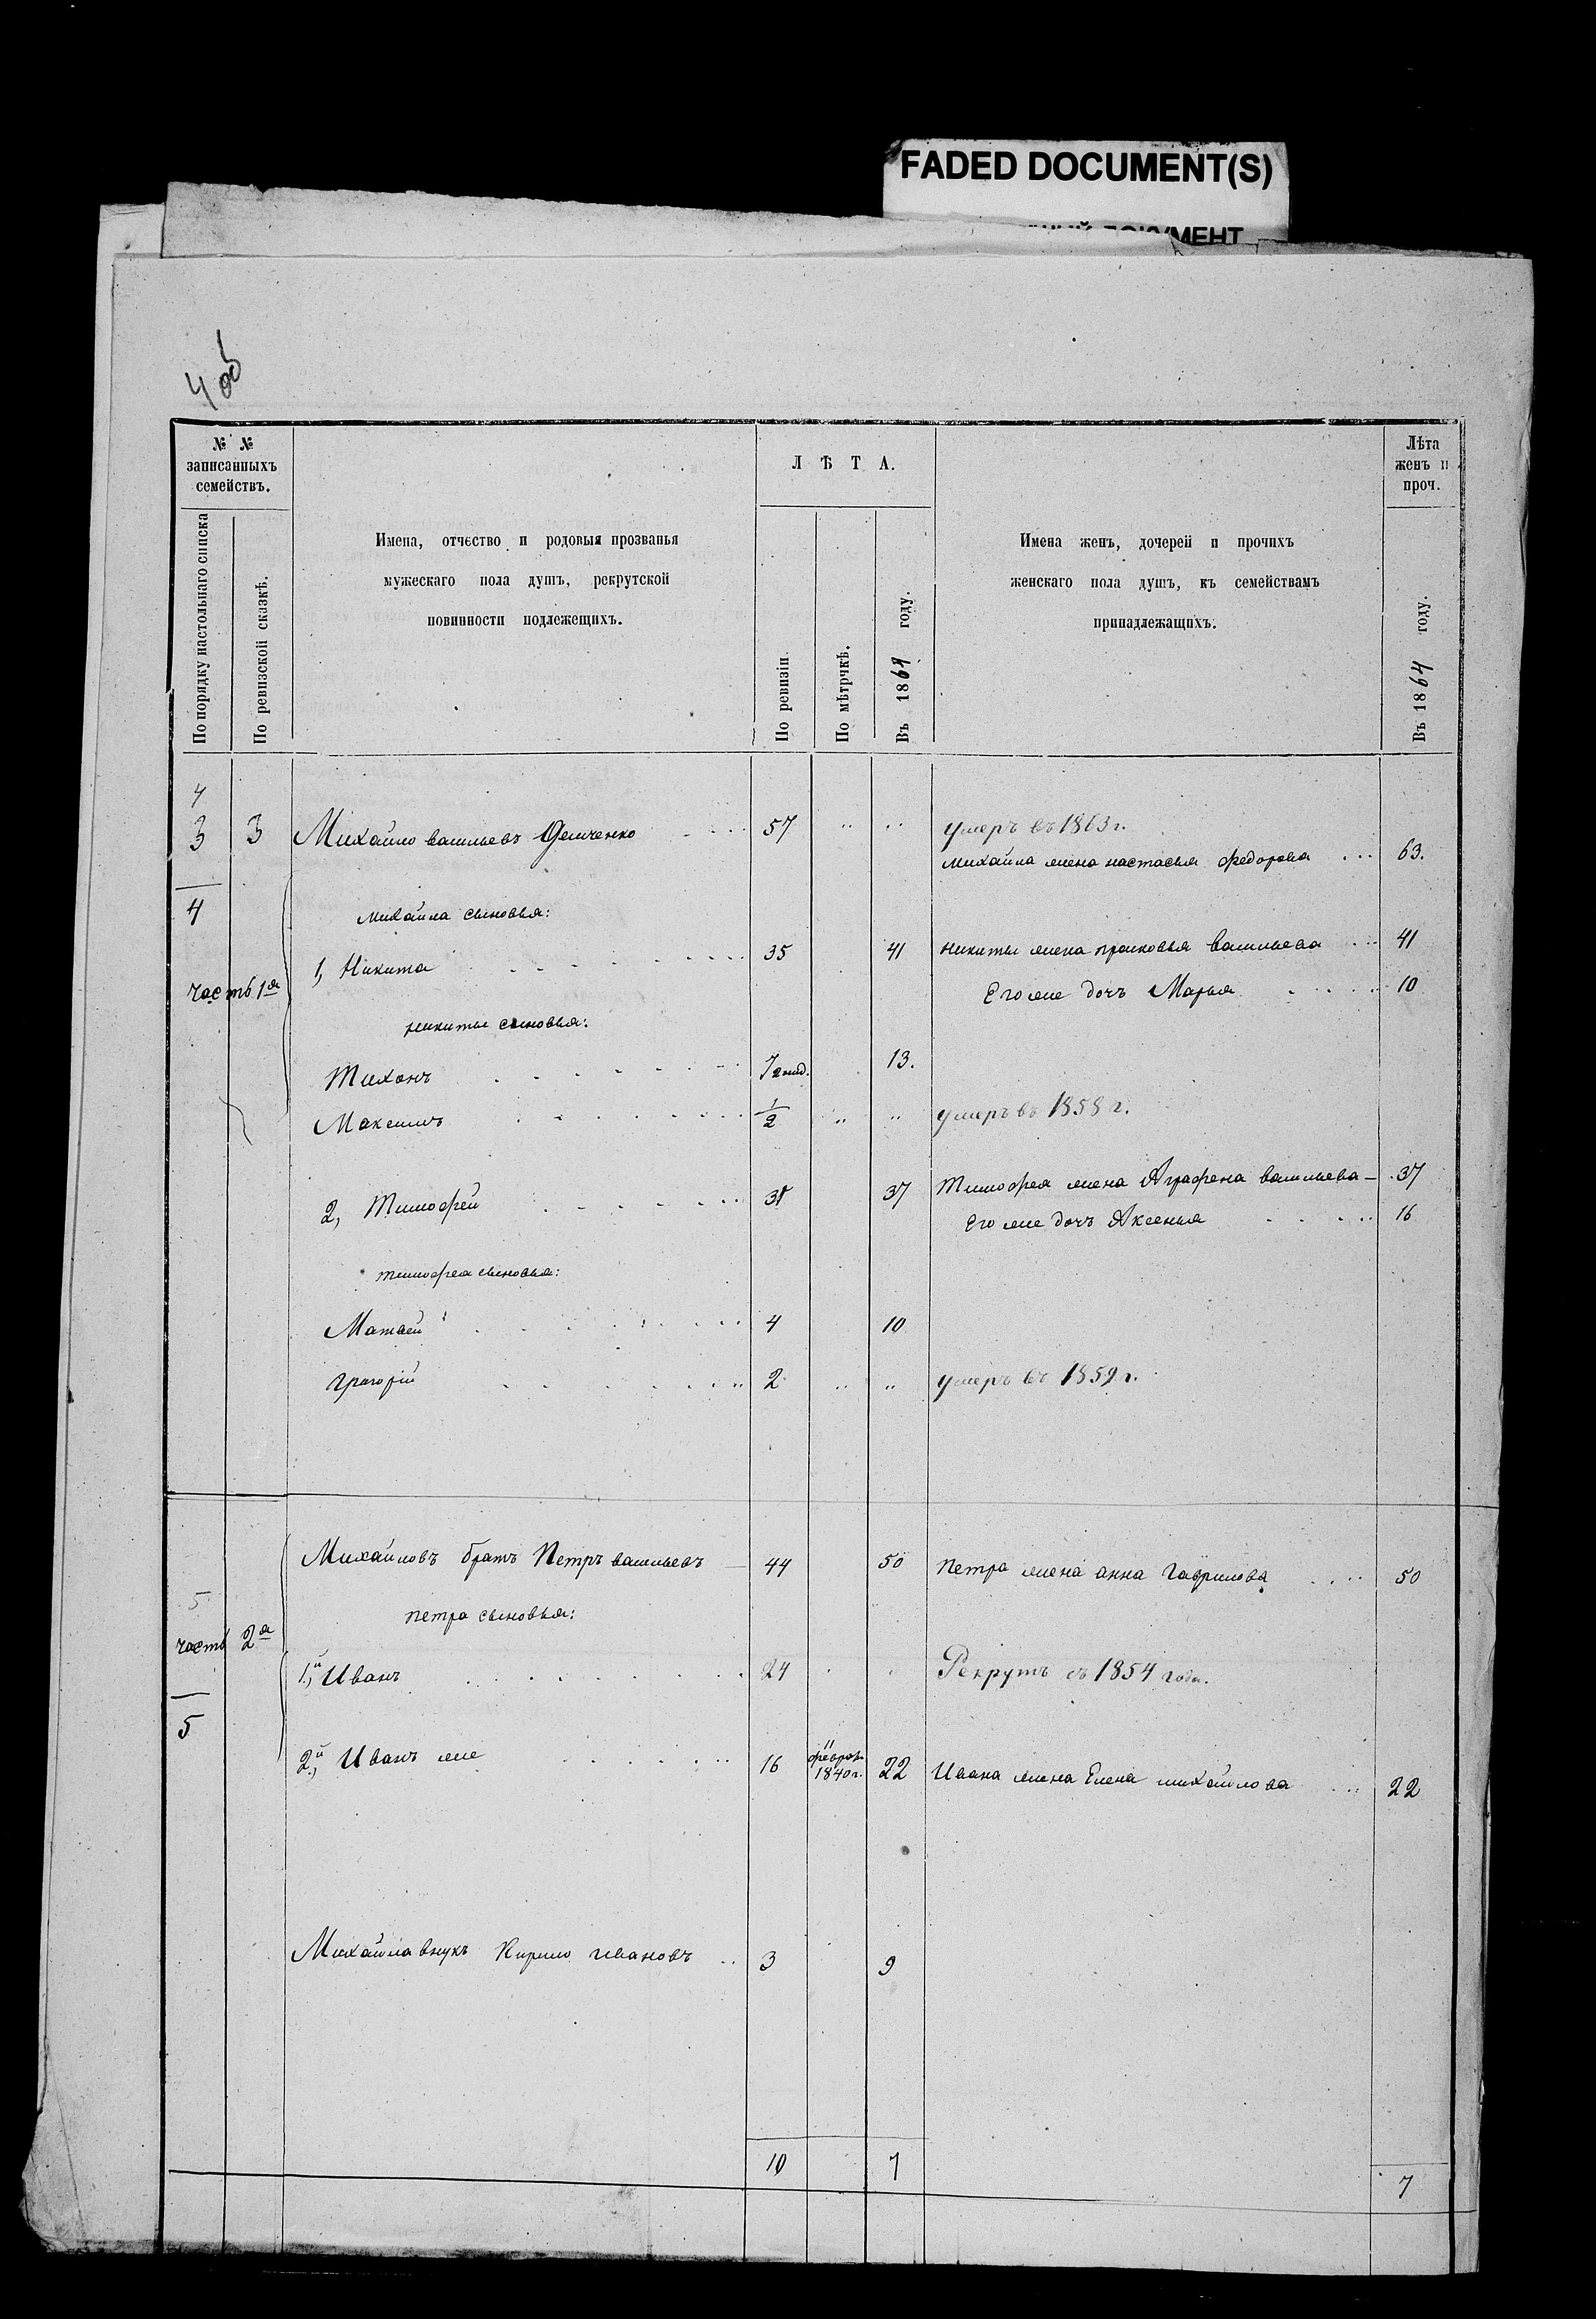 FADED DOCUMENT(S)
4 об
№ №
записанныхъ
семействъ.
Л Ѣ Т А.
Лѣта
женъ и
проч.
По порядку настольнаго списка
По ревизской сказкѣ.
Имена, отчество и родовыя прозванья
мужескаго пола душъ, рекрутской
повинности подлежещихъ.
По ревизіи
По мѣтрчкѣ.
Въ 1864 году.
Имена женъ, дочерей и прочихъ
женскаго пола душъ, къ семействамъ
принадлежащихъ.
Въ 1864 году.
4
3 3 Михайло васильевъ Демченко 57 " " умеръ въ 1863 г.
михайла жена настасья федорова 63.
4 михайла сыновья:
1, Никита 35 41 никиты жена прасковья васильева 41
часть 1я Его же дочъ Марья 10
никиты сыновья:
Тихонъ 7 нед. 13.
Максимъ 1/2 " " умеръ въ 1858 г.
2, Тимофей 31 37 Тимофея жена Аграфена васильева 37
Его же дочъ Аксенья 16
тимофея сыновья:
Матвей 4 10
григорій 2 " " умеръ въ 1859 г.
Михайловъ братъ Петръ васильевъ 44 50 Петра жена анна гаврилова 50
5 петра сыновья:
часть 2я
1й, Иванъ 24 Рекрутъ съ 1854 года.
5
2й, Иванъ же 16 11 феврал. 1840 г. 22 Ивана жена Елена михайлова 22
Михайла внукъ Кирило ивановъ 3 9
10 7 7